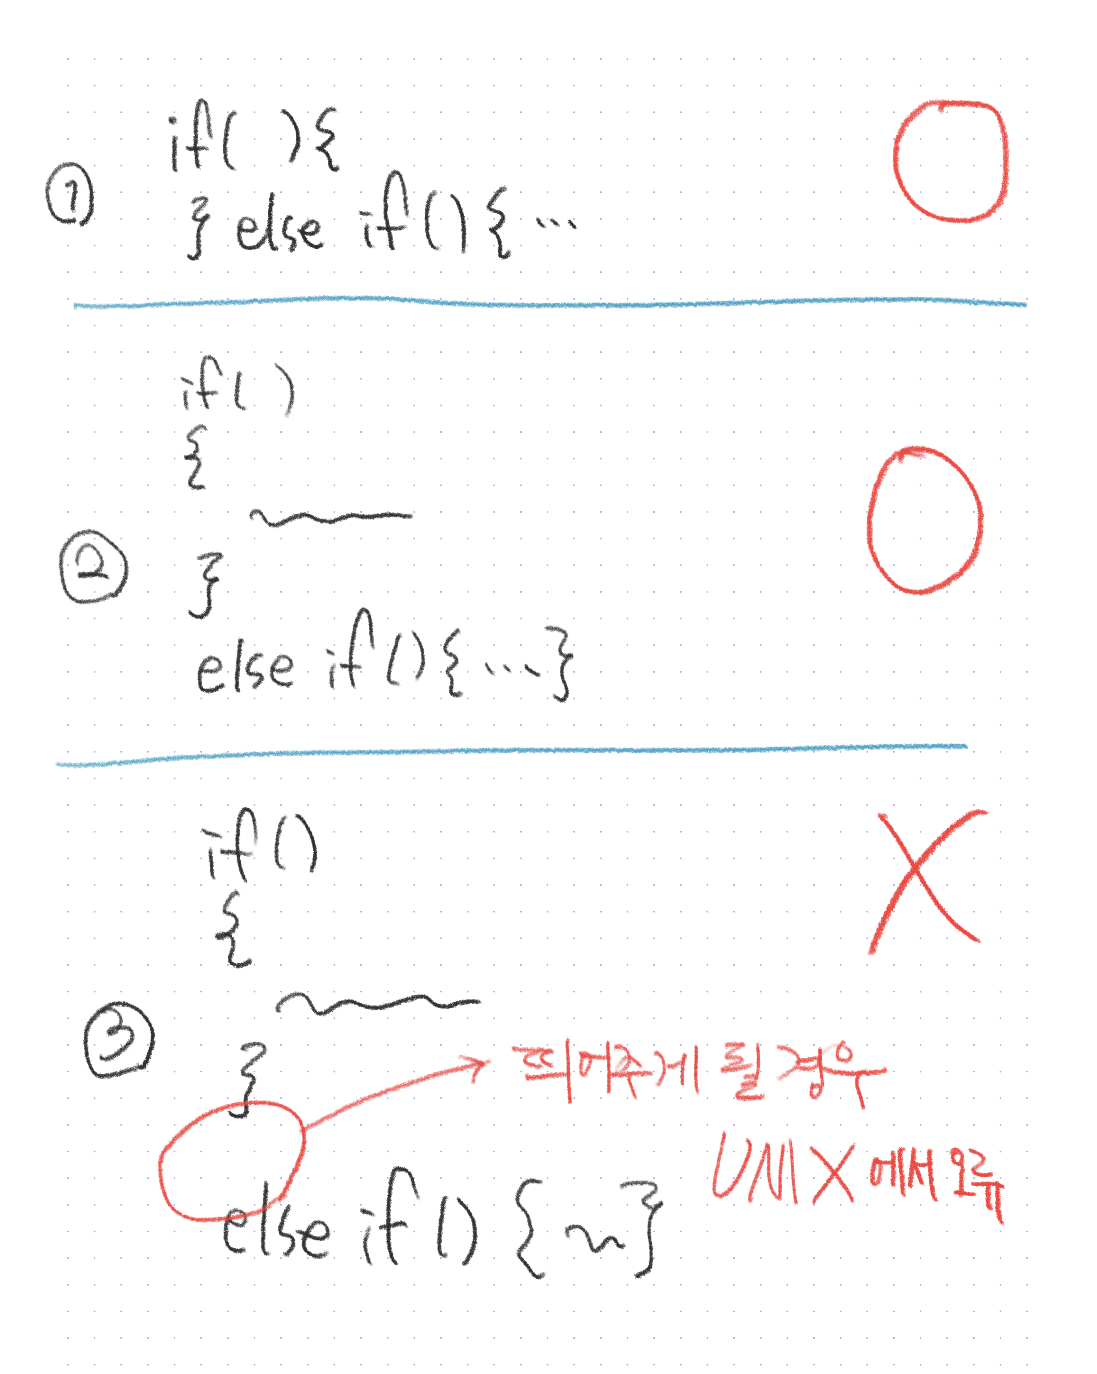 ①
if( ){
} else if(){...
②
if( )
{
}
else if(){...}
③
if()
{
}
띄어주게 될 경우
UNIX에서 오류
else if() {~}